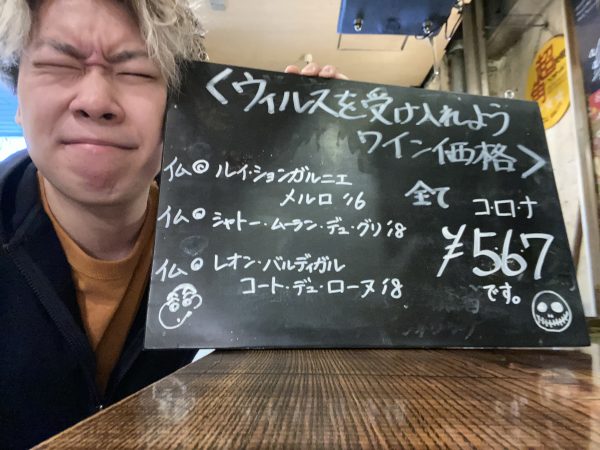 <ウィルスを受け入れよう
ワイン価格>
イム◎ ルイ・ションガルニエ
メルロ '16
イム◎ シャトー・ムーラン・デュ・グリ '18
イム◎ レオン・バルディガル
コート・デュ・ローヌ '18
全て コロナ
¥567
です。